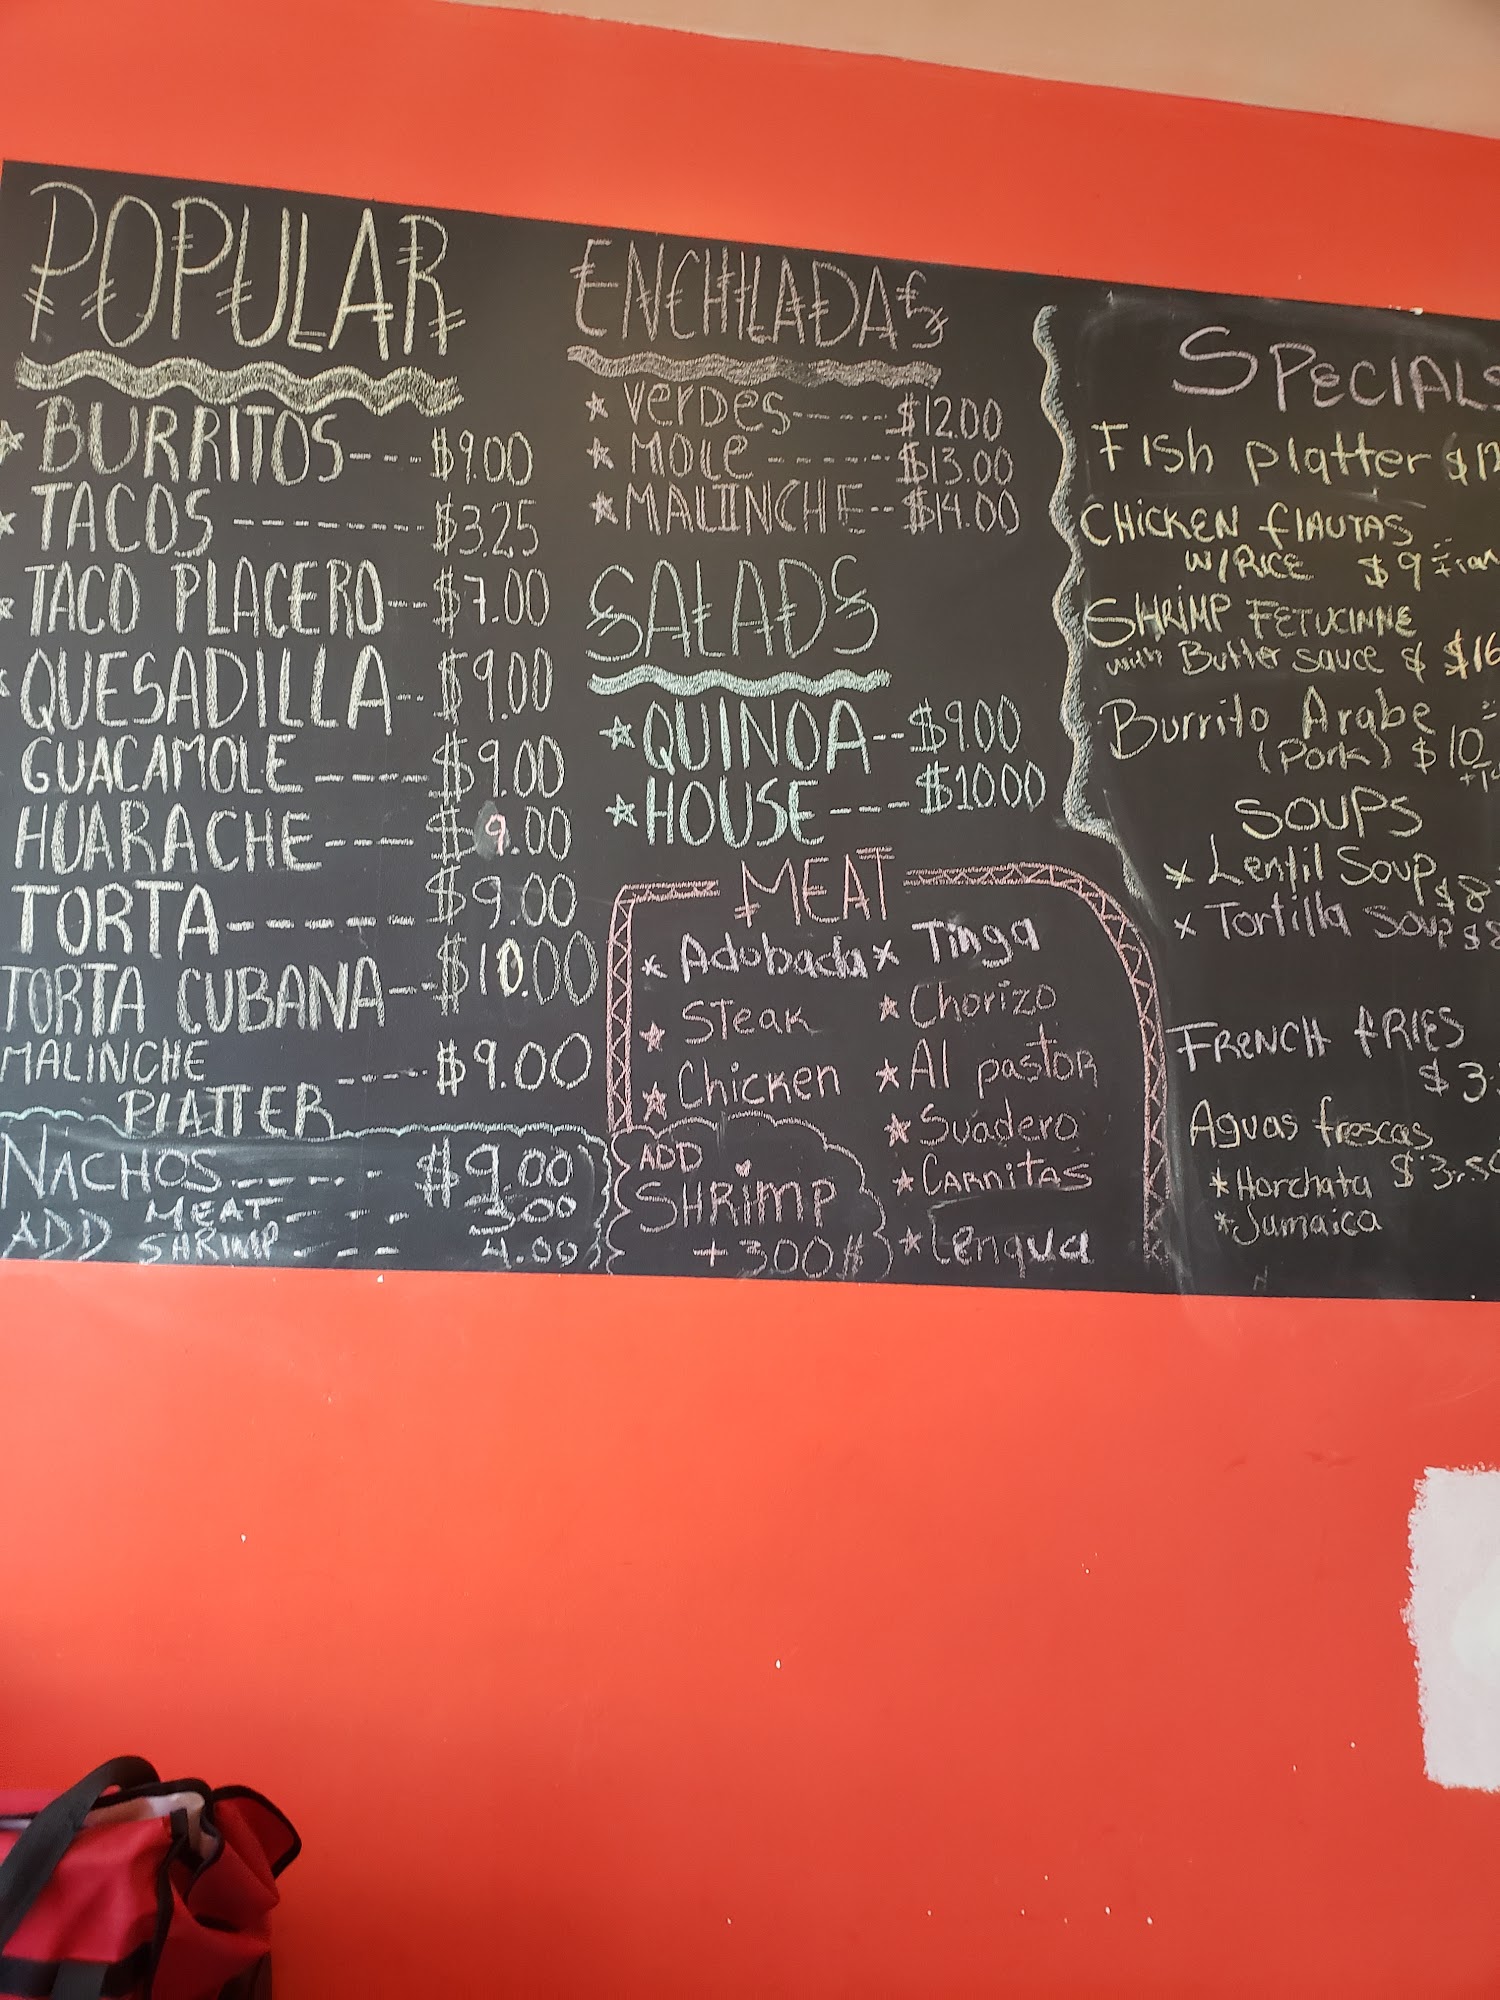 POPULAR
* BURRITOS---- $9.00
* TACOS -------- $3.25
* TACO PLACERO--- $7.00
* QUESADILLA-- $9.00
GUACAMOLE---- $9.00
HUARACHE---- $9.00
TORTA------ $9.00
TORTA CUBANA-- $10.00
MALINCHE
PLATTER ---- $9.00
NACHOS----- $9.00
ADD MEAT---- 3.00
SHRIMP---- 4.00
ENCHILADAS
* VerDes------ $12.00
* MOLe -------- $13.00
* MALINCHE-- $14.00
SALADS
* QUINOA-- $9.00
* HOUSE---- $10.00
MEAT
* Adobada * Tinga
* STeak * Chorizo
* Chicken * Al pastor
* Suadero
* CARNiTAS
* Lengua
ADD
SHRImp
+3.00$
SPECIALS
Fish platter
CHiCKEN flAUTAS
W/RICE $9
SHRIMP FETUCINNE
with Butter sauce & $16
Burrito Arabe
(Pork) $10
SOUPS
* Lentil Soup $8
* Tortilla soup $8
FRENCH fRIES
$3.
Aguas frescas
$3.50
* Horchata
* Jamaica